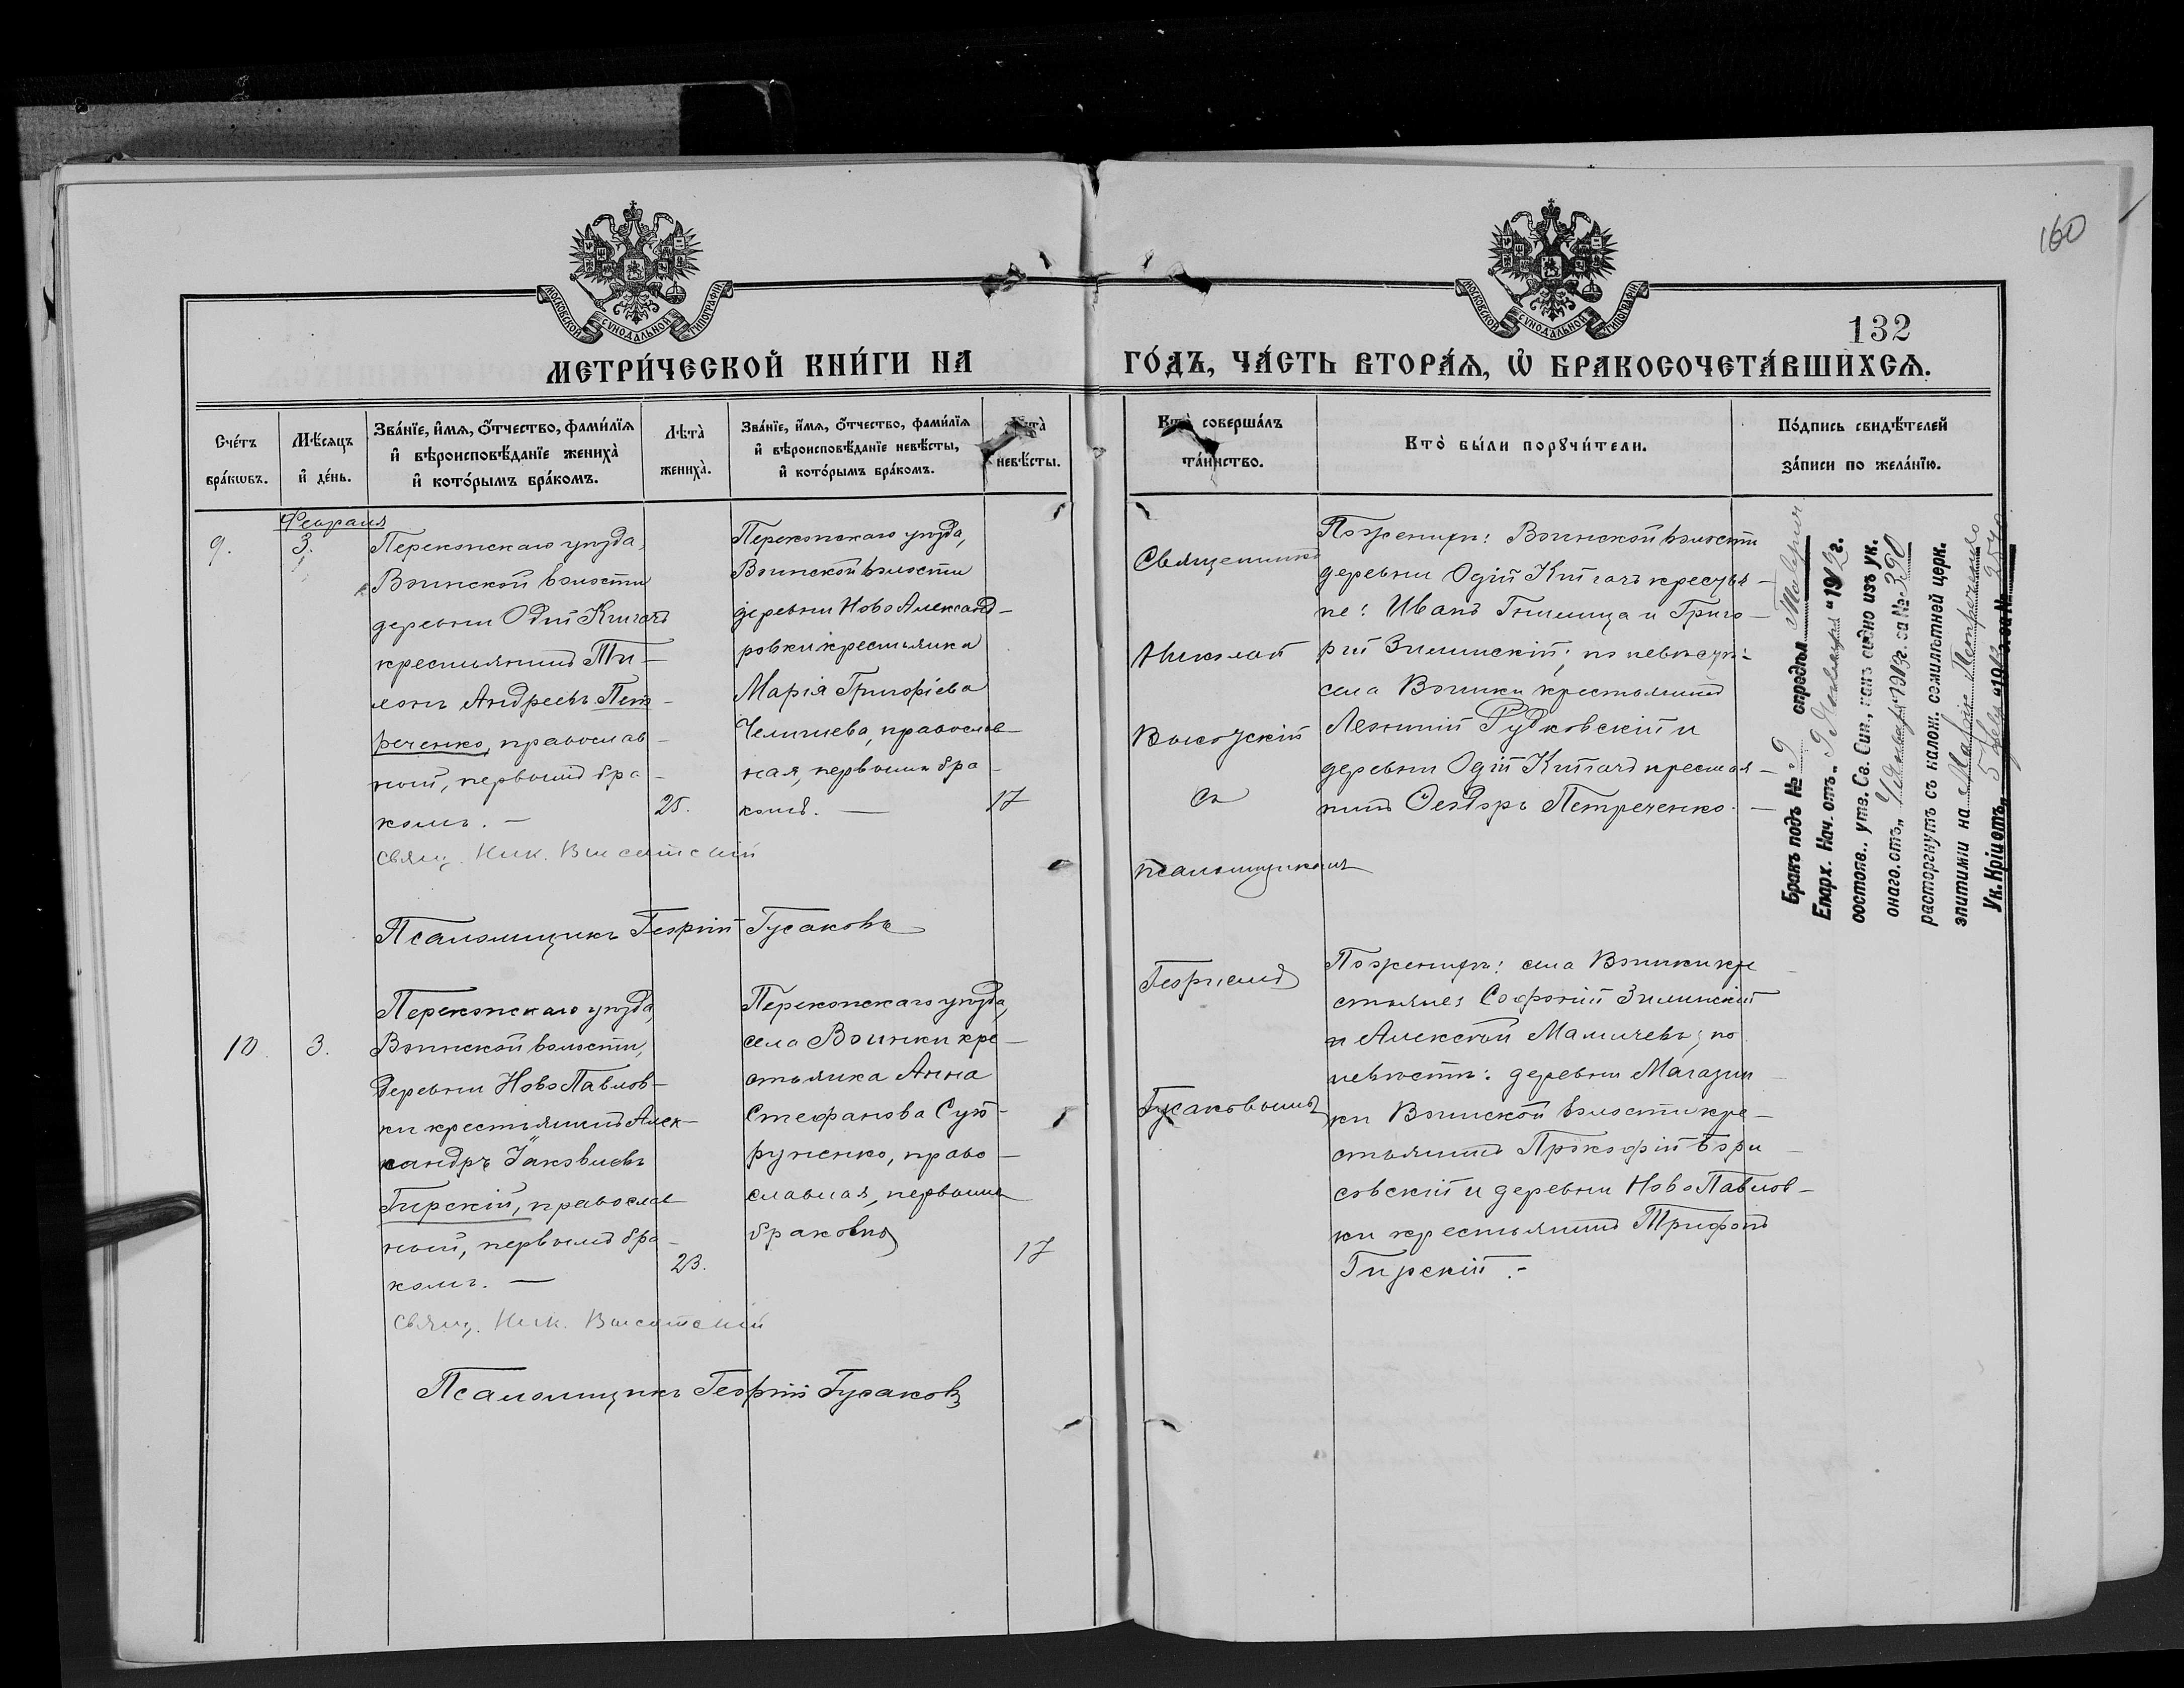 160
132
МОСКОВСКОЙ СѴНОДАЛЬНОЙ ТИПОГРАФІИ
МОСКОВСКОЙ СѴНОДАЛЬНОЙ ТИПОГРАФІИ
МЕТРИ́ЧЕСКОЙ КНИ́ГИ НА ГО́ДЪ, ЧА́СТЬ ВТОРА́Ѧ, Ѽ БРАКОСОЧЕТА́ВШИХСѦ.
Сче́тъ бра́кѡвъ.
Мѣ́сяцъ и҆ де́нь.
Зва́нїе, и҆́мѧ, ѻ҆́тчество, фами́лїѧ
и҆ вѣроисповѣ́данїе жениха̀
и҆ кото́рымъ бра́комъ.
Лѣта̀ жениха̀.
Зва́нїе, и҆́мѧ, ѻ҆́тчество, фами́лїѧ
и҆ вѣроисповѣ́данїе невѣ́сты,
и҆ кото́рымъ бра́комъ.
Лѣта̀ невѣ́сты.
Кто̀ соверша́лъ та́инство.
Кто̀ бы́ли порꙋчи́тели.
По́дпись свидѣ́телей
за́писи по жела́нїю.
9.
Февраля
3.
Перекопскаго уѣзда,
Воинской волости
деревни Одій Кигачъ
крестьянинъ Ти-
хонъ Андреевъ Пет-
реченко, православ-
ный, первымъ бра-
комъ. —
25.
Перекопскаго уѣзда,
Воинской волости
деревни НовоАлександ-
ровки крестьянка
Марія Григоріева
православ-
ная, первымъ бра-
комъ. —
17
Свящ. Ник. Высотскій
Псаломщикъ Георгій Гусаковъ
Священникъ
Николай
Высотскій
съ
псаломщикомъ
Георгіемъ
Гусаковымъ
По женихѣ: Воинской волости
деревни Одій Кигачъ крестья-
не: Иванъ и Григо-
рій Зилинскій; по невѣстѣ:
села Воинки крестьянинъ
Леонтій Рудковскій и
деревни Одій Кигачъ крестья-
нинъ Ѳеодоръ Петреченко. —
Бракъ подъ № 9 опредѣл Таврич
Епарх. Нач. отъ „9 Января“ 1912 г.
состояв., утв. Св. Син., какъ видно изъ ук.
онаго, отъ „ “ 1913 г. за № 390
расторгнутъ съ налож. семилѣтней церк.
эпитиміи на Марію Петреченко
Ук. К-ріи отъ „5 Февр“ 1913 г. за № 2540
10.
3.
Перекопскаго уѣзда,
Воинской волости,
деревни НовоПавлов-
ки крестьянинъ Алек-
сандръ Іаковлевъ
Гирскій, православ-
ный, первымъ бра-
комъ. —
23.
Перекопскаго уѣзда,
села Воинки кре-
стьянка Анна
Стефанова Суп-
руненко, право-
славная, первымъ
бракомъ
17
Свящ. Ник. Высотскій
Псаломщикъ Георгій Гусаковъ
По женихѣ: села Воинки кре-
стьяне: Софоній Зилинскій
и Алексѣй Мамичевъ; по
невѣстѣ: деревни Магазин-
ки Воинской волости кре-
стьянинъ Прокофій Бори-
совскій и деревни НовоПавлов-
ки крестьянинъ Трифонъ
Гирскій. -